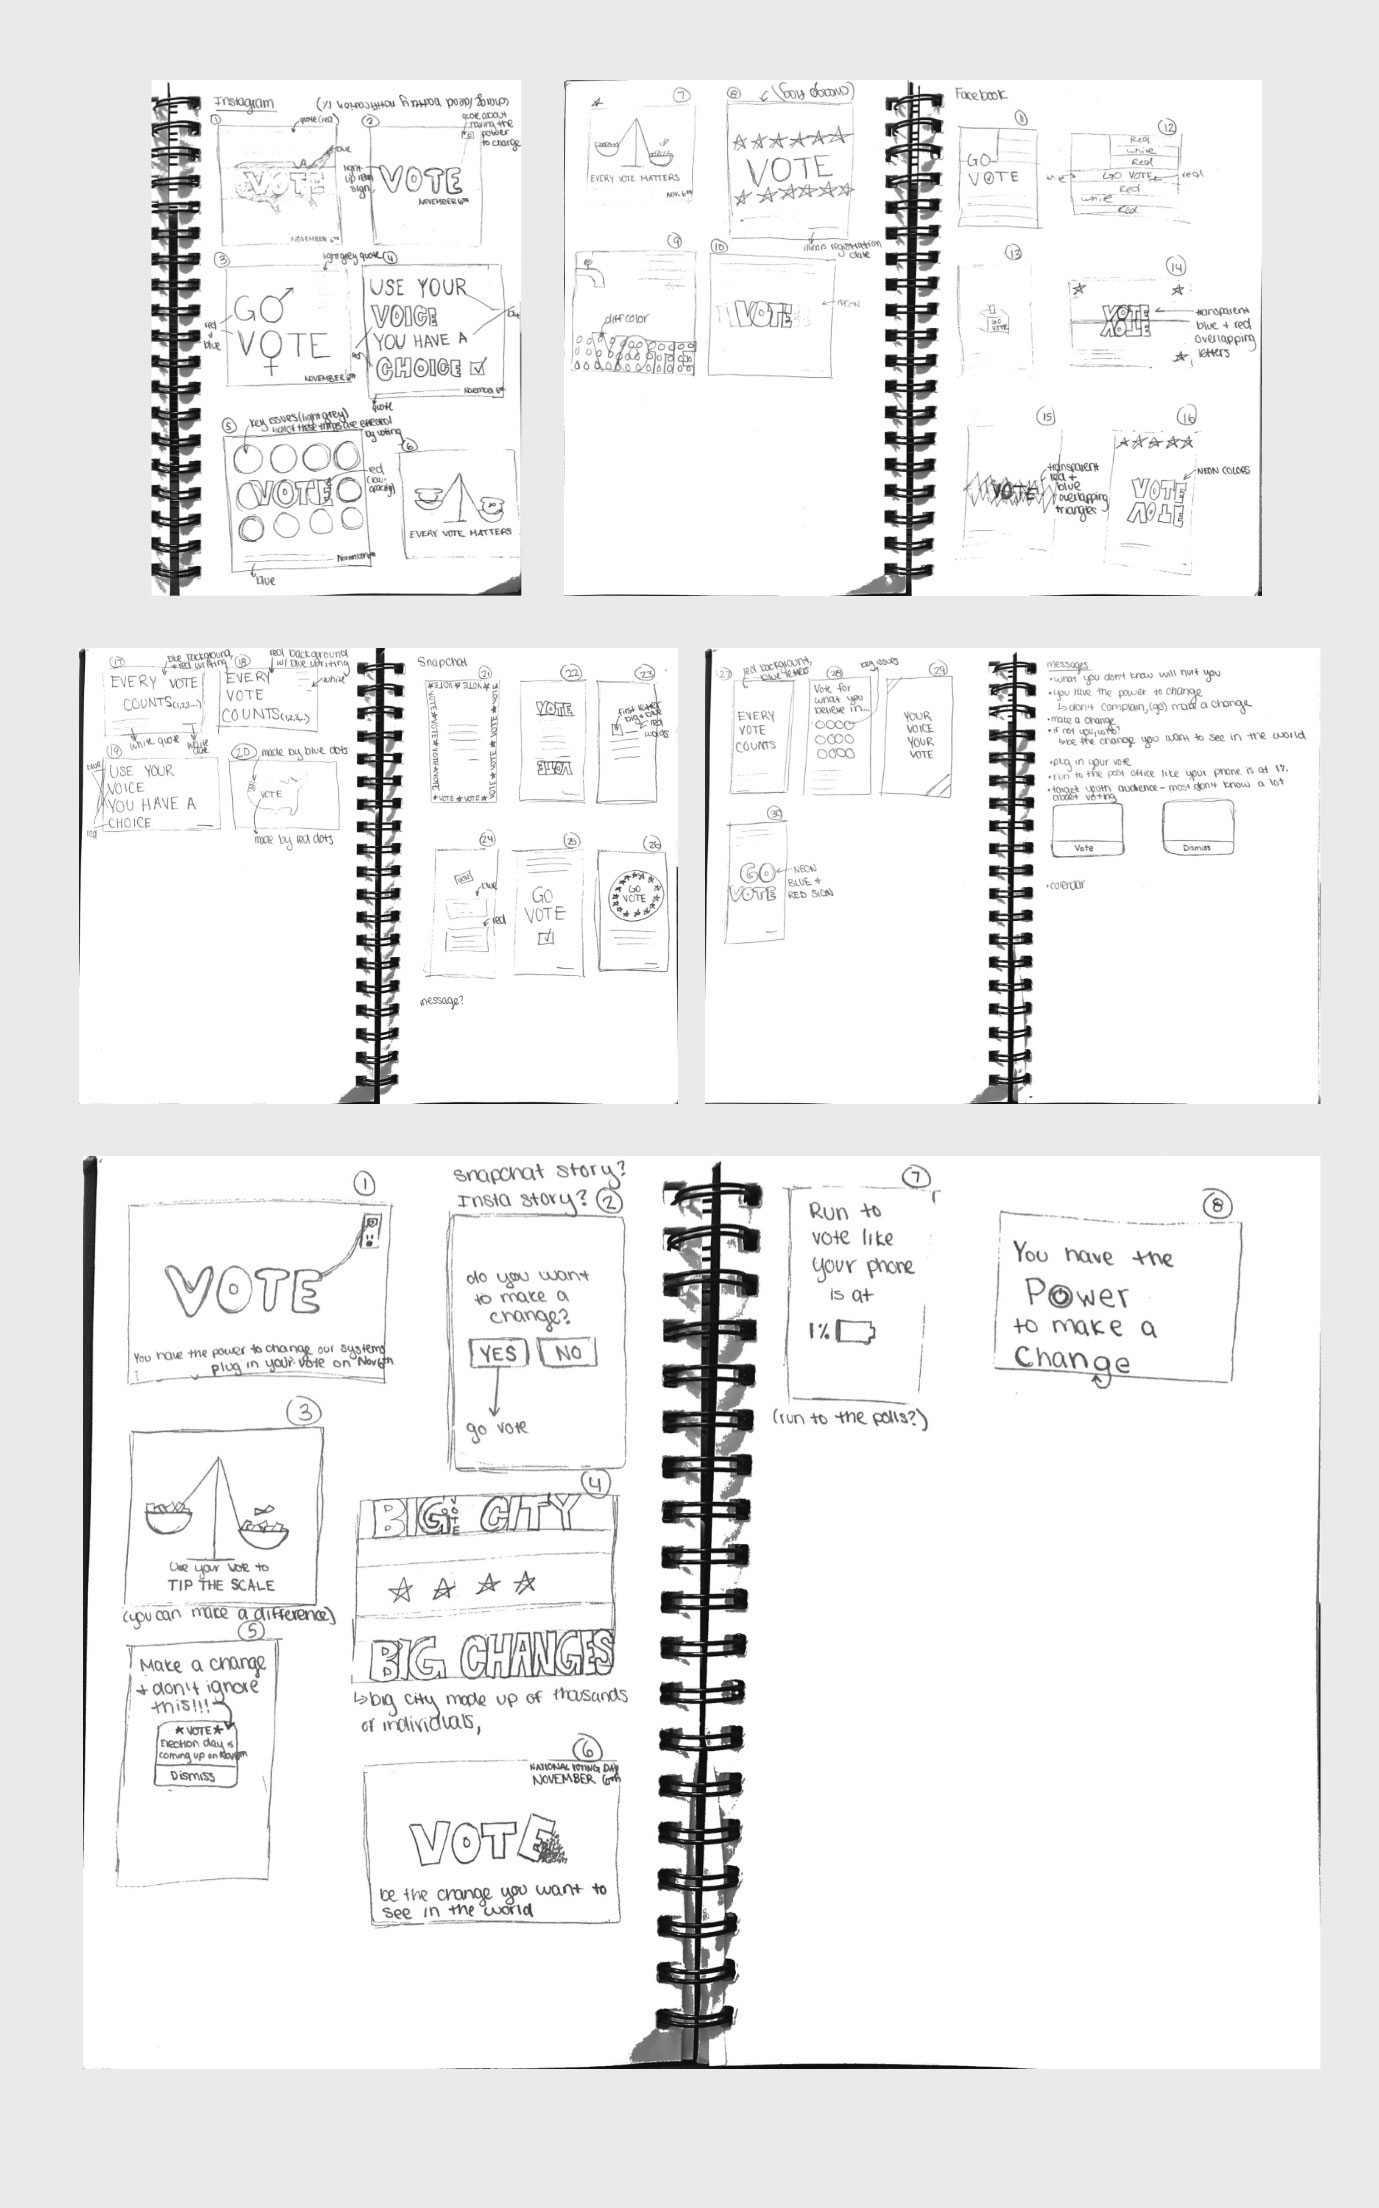 Instagram
①
quote (red)
blue
VOTE
NOVEMBER 6TH
②
quote about
having the
power
to change
light
up neon
sign
VOTE
NOVEMBER 6TH
③
light grey quote
GO
VOTE
red
+
blue
NOVEMBER 6TH
④
USE YOUR
VOICE
YOU HAVE A
CHOICE
blue
red
November 6th
quote
⑤
key issues (light grey)
by voting
VOTE
red
(low
opacity)
November 6th
blue
⑥
EVERY VOTE MATTERS
⑦
EVERY VOTE MATTERS
NOV. 6TH
⑧
(chicago flag)
VOTE
illinois registration
date
⑨
diff color
⑩
VOTE
NEON
Facebook
GO
VOTE
⑫
Red
white
Red
GO VOTE
red
Red
white
Red
⑬
GO
VOTE
⑭
VOTE
VOTE
transparent
blue + red
overlapping
letters
⑮
VOTE
transparent
red +
blue
overlapping
triangles
⑯
VOTE
VOTE
NEON COLORS
⑰
blue background,
+ red writing
EVERY VOTE
COUNTS (1,2,3...)
white quote
⑱
red background
w/ blue writing
EVERY
VOTE
COUNTS (1,2,3...)
white
white
date
⑲
blue
USE YOUR
VOICE
YOU HAVE A
CHOICE
red
⑳
made by blue dots
VOTE
made by red dots
Snapchat
21
VOTE★VOTE★VOTE
VOTE★VOTE★VOTE
★VOTE★VOTE★
22
VOTE
VOTE
23
first letter
big + blue
red
words
24
VOTE
blue
red
25
GO
VOTE
26
GO
VOTE
message?
27
red background,
blue letters
EVERY
VOTE
COUNTS
28
key issues
Vote for
what you
believe in...
29
YOUR
VOICE
YOUR
VOTE
30
GO
VOTE
NEON
BLUE +
RED SIGN
messages
•what you don't know will hurt you
•you have the power to change
↳ don't complain, (go) make a change
•make a change
•if not you, who?
↳be the change you want to see in the world
•plug in your vote
•run to the post office like your phone is at 1%
•target youth audience - most don't know a lot
about voting
Vote
Dismiss
•calendar
①
VOTE
You have the power to change our systems
plug in your vote on Nov 6th
snapchat story?
Insta story? ②
do you want
to make a
change?
YES NO
go vote
③
Use your vote to
TIP THE SCALE
(you can make a difference)
④
BIG CITY
VOTE
BIG CHANGES
↳big city made up of thousands
of individuals,
⑤
Make a change
+ don't ignore
this!!!
★VOTE★
Election day is
coming up on Nov 6th
Dismiss
⑥
NATIONAL VOTING DAY
NOVEMBER 6th
VOTE
be the change you want to
see in the world
⑦
Run to
vote like
your phone
is at
1%
(run to the polls?)
⑧
You have the
Power
to make a
change